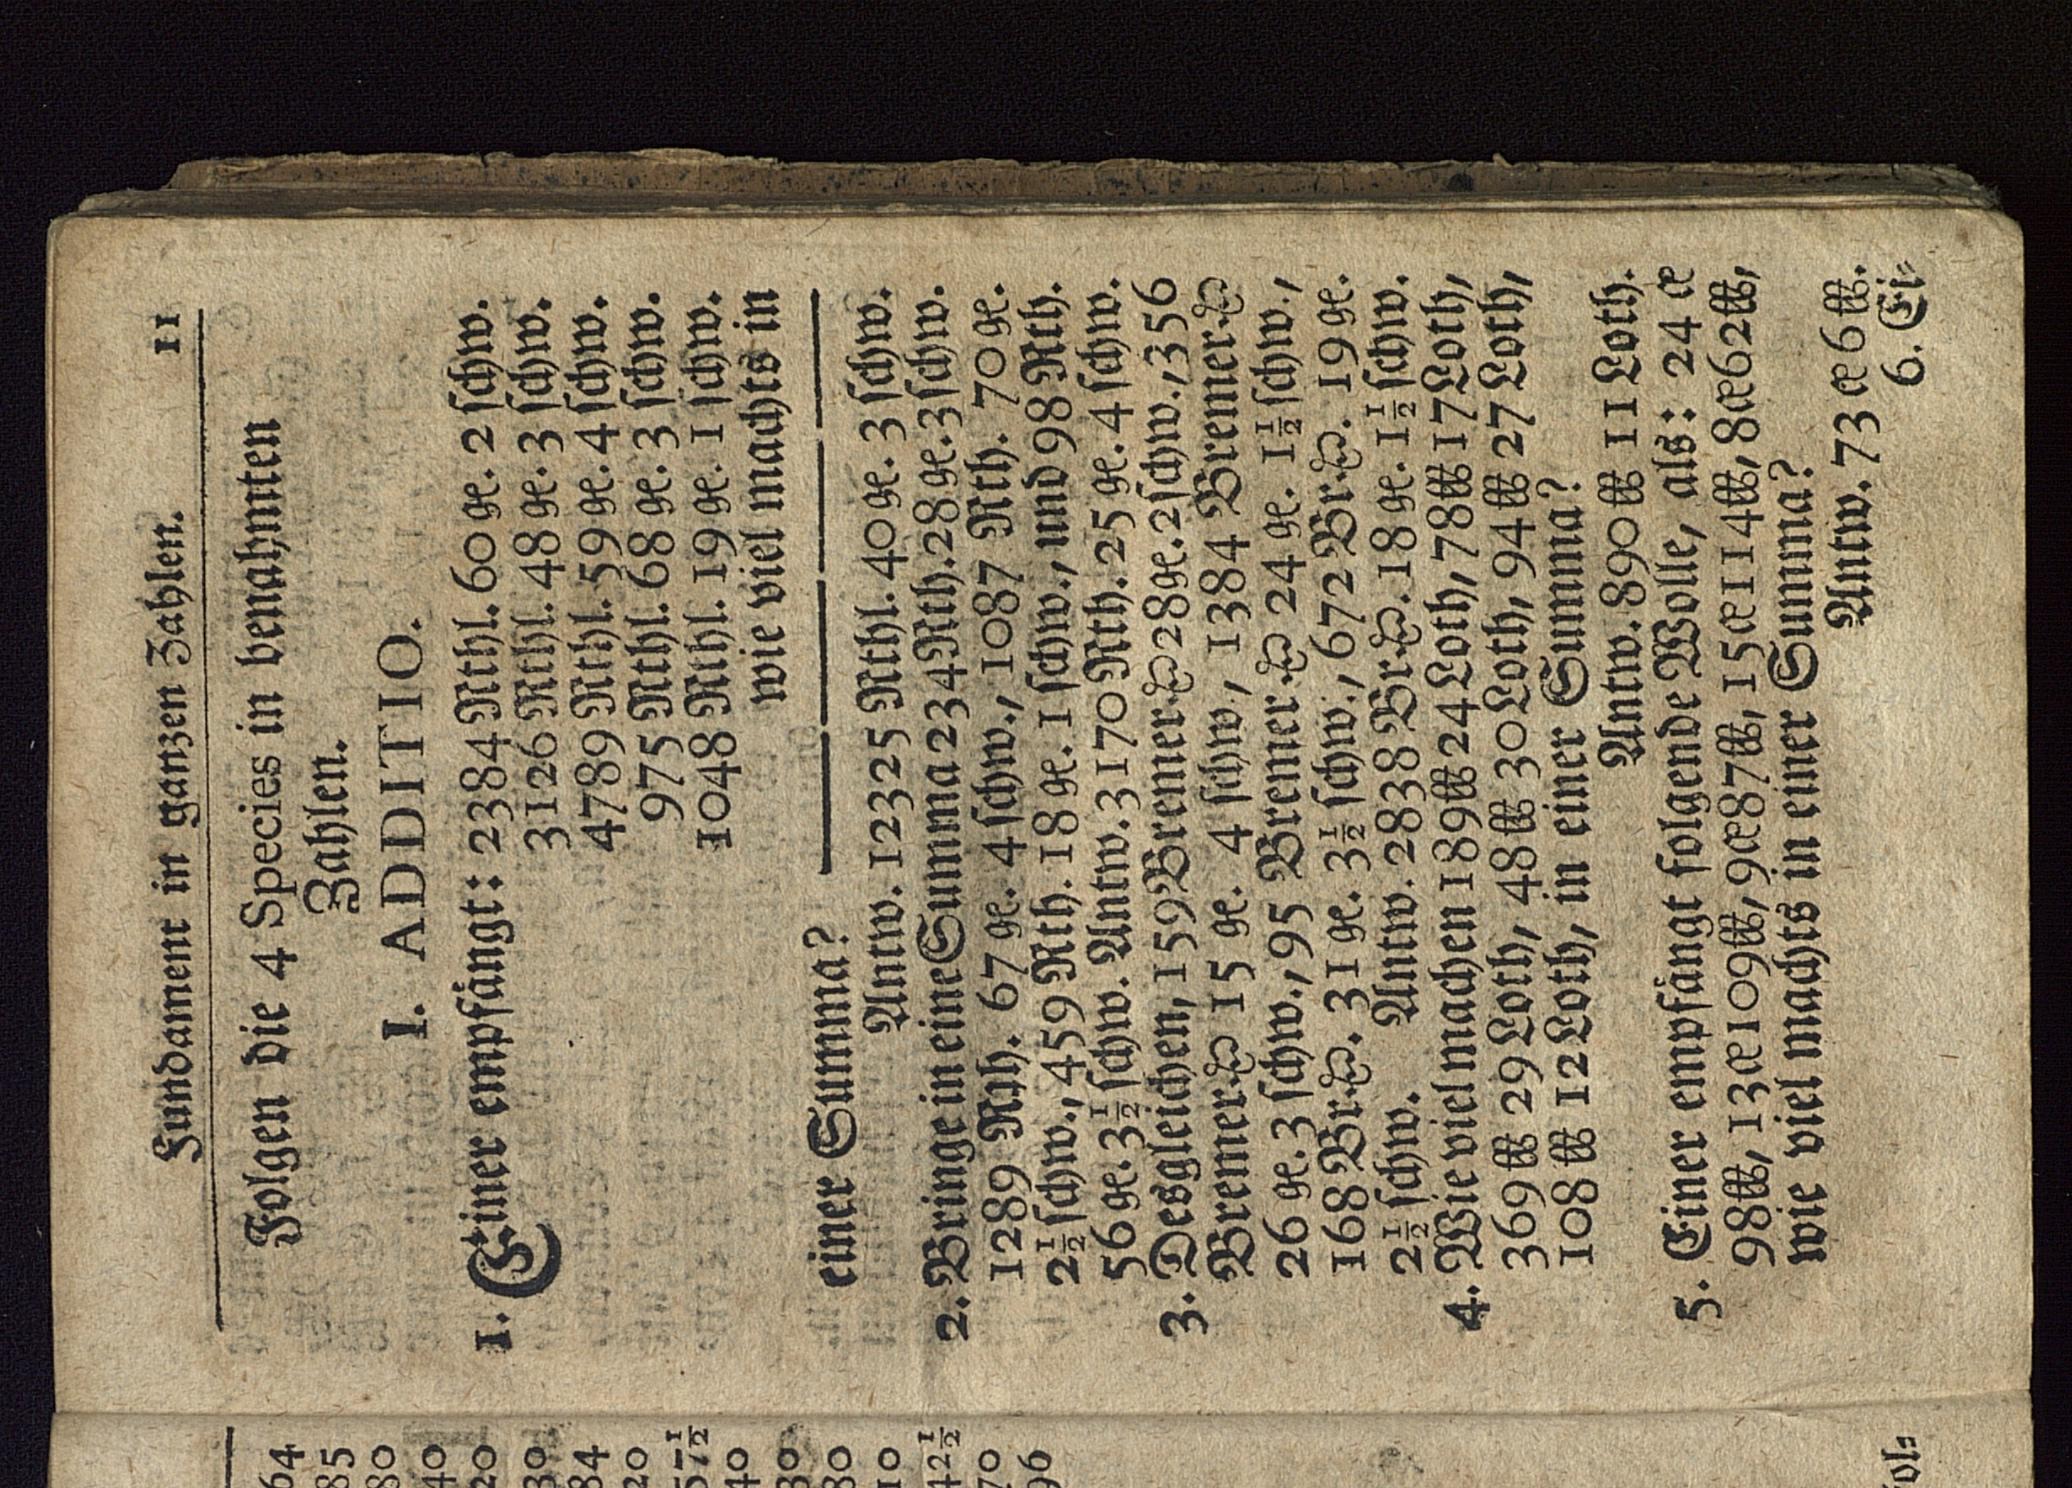 Fundament in ganzen Zahlen. 11
Folgen die 4 Species in benahmten
Zahlen.
I. ADDITIO.
1. Einer empfängt: 2384 Rthl. 60 gℓ. 2 schw.
3126 Rthl. 48 gℓ. 3 schw.
4789 Rthl. 59 gℓ. 4 schw.
975 Rthl. 68 gℓ. 3 schw.
1048 Rthl. 19 gℓ. 1 schw.
wie viel machts in
einer Summa?
Antw. 12325 Rthl. 40 gℓ. 3 schw.
2. Bringe in eine Summa 234 Rth. 28 gℓ. 3 schw.
1289 Rth. 67 gℓ. 4 schw., 1087 Rth. 70 gℓ.
2½ schw., 459 Rth. 18 gℓ. 1 schw., und 98 Rth.
56 gℓ. 3½ schw. Antw. 3170 Rth. 25 gℓ. 4 schw.
3. Desgleichen, 159 Bremer ℔ 28 gℓ. 2 schw., 356
Bremer ℔ 15 gℓ. 4 schw., 1384 Bremer ℔
26 gℓ. 3 schw., 95 Bremer ℔ 24 gℓ. 1½ schw.,
168 Br. ℔. 31 gℓ. 3½ schw., 672 Br. ℔. 19 gℓ.
2½ schw. Antw. 2838 Br. ℔. 18 gℓ. 1½ schw.
4. Wie viel machen 189 ℔ 24 Loth, 78 ℔ 17 Loth,
369 ℔ 29 Loth, 48 ℔ 30 Loth, 94 ℔ 27 Loth,
108 ℔ 12 Loth, in einer Summa?
Antw. 890 ℔ 11 Loth.
5. Einer empfängt folgende Wolle, als: 24 œ
98 ℔, 13 œ 109 ℔, 9 œ 87 ℔, 15 œ 114 ℔, 8 œ 62 ℔,
wie viel machts in einer Summa?
Antw. 73 œ 6 ℔.
6. Ei⸗
64
85
80
40
20
30
84
20
57½
40
30
80
10
42½
70
96
Fol⸗